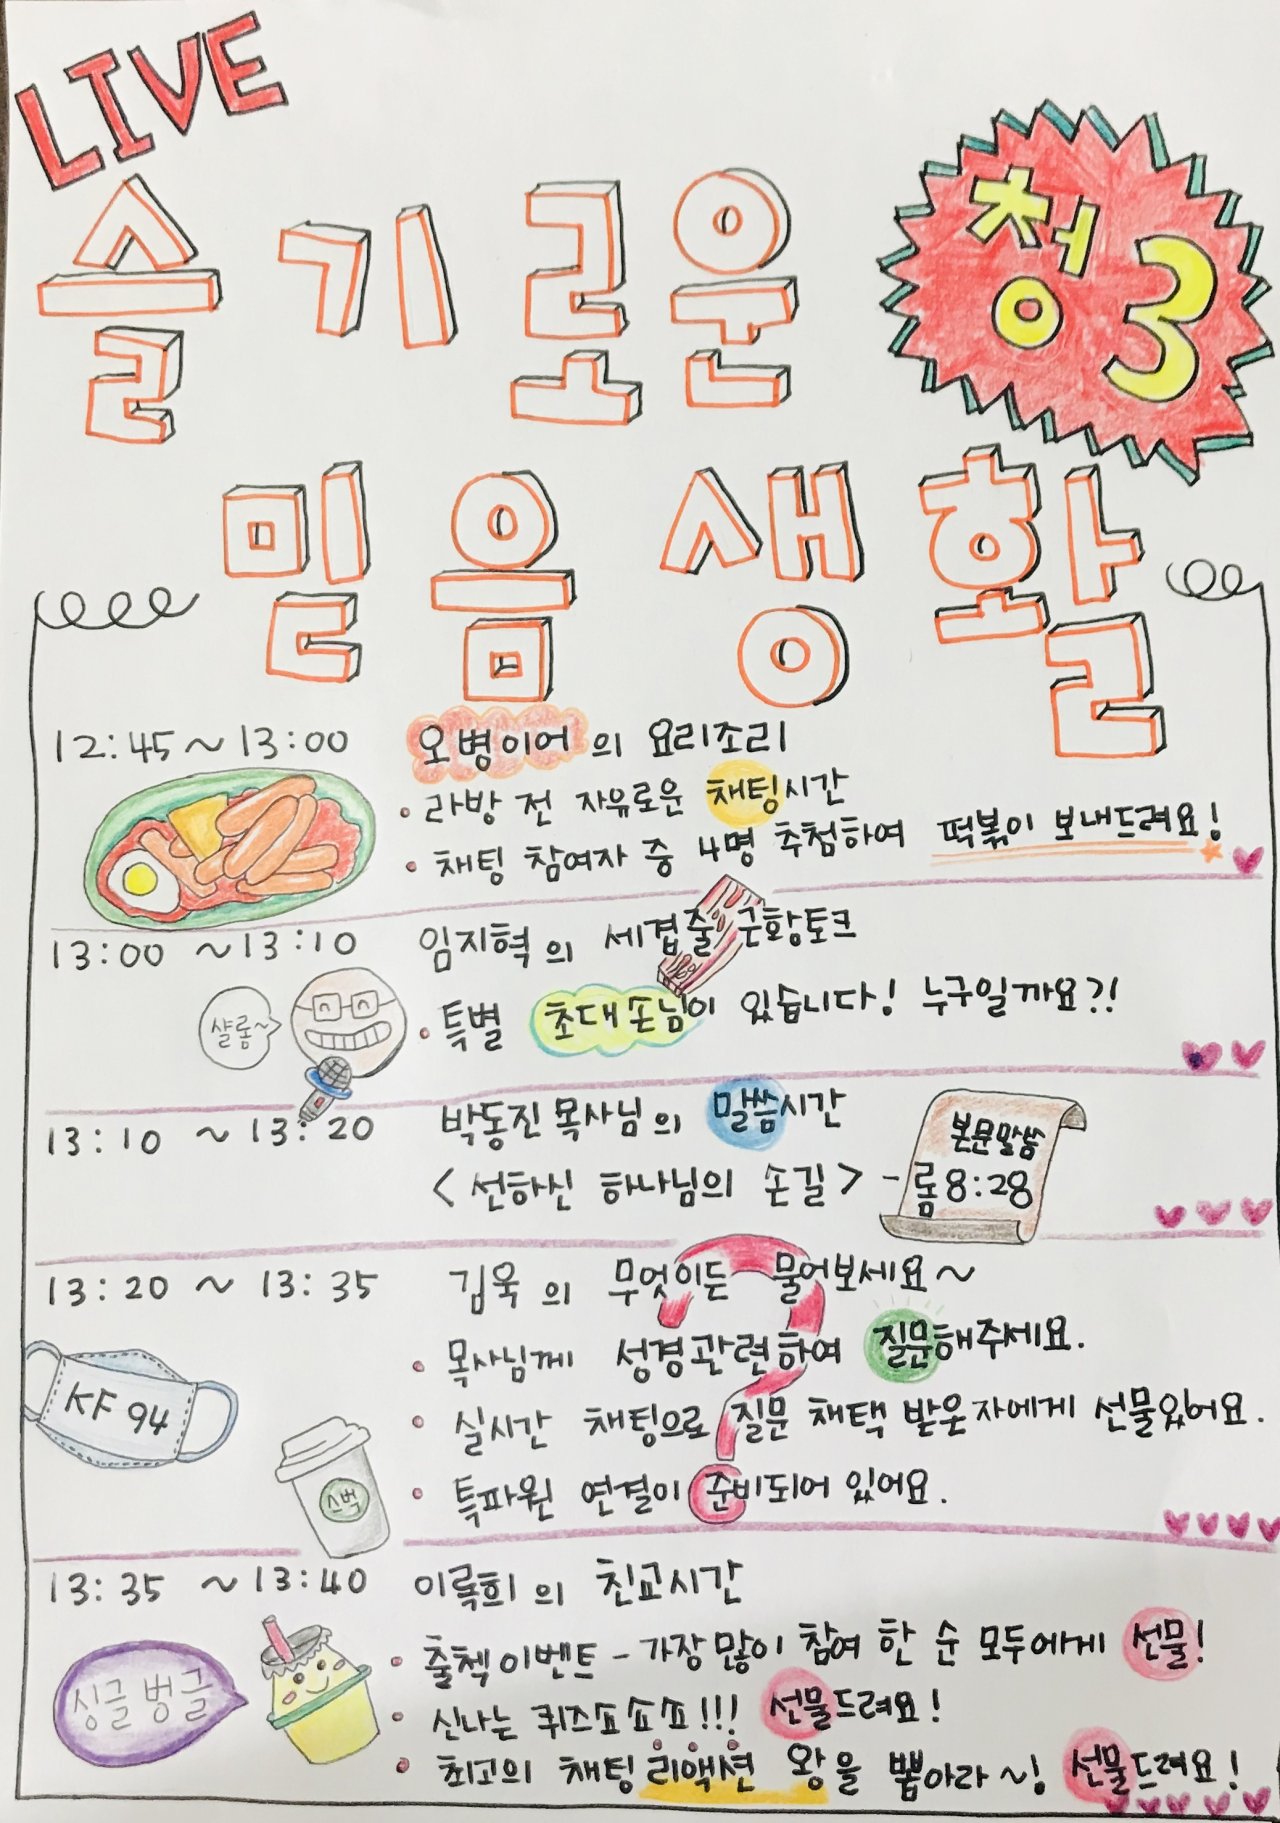 LIVE
슬기로운
청3
믿음생활
12:45 ~ 13:00 오병이어의 요리조리
• 라방 전 자유로운 채팅시간
• 채팅 참여자 중 4명 추첨하여 떡볶이 보내드려요!
13:00 ~ 13:10 임지혁의 세겹줄 근황토크
샬롬~
• 특별 초대손님이 있습니다! 누구일까요?!
13:10 ~ 13:20 박동진 목사님의 말씀시간
<선하신 하나님의 손길> - 본문말씀
롬 8:28
13:20 ~ 13:35 김욱의 무엇이든 물어보세요~
• 목사님께 성경관련하여 질문해주세요.
KF 94
• 실시간 채팅으로 질문 채택 받은자에게 선물있어요.
스벅
• 특파원 연결이 준비되어 있어요.
13:35 ~ 13:40 이록희의 친교시간
• 출첵이벤트 - 가장 많이 참여 한 순 모두에게 선물!
싱글벙글
• 신나는 퀴즈쇼쇼쇼!!! 선물드려요!
• 최고의 채팅 리액션 왕을 뽑아라~! 선물드려요!